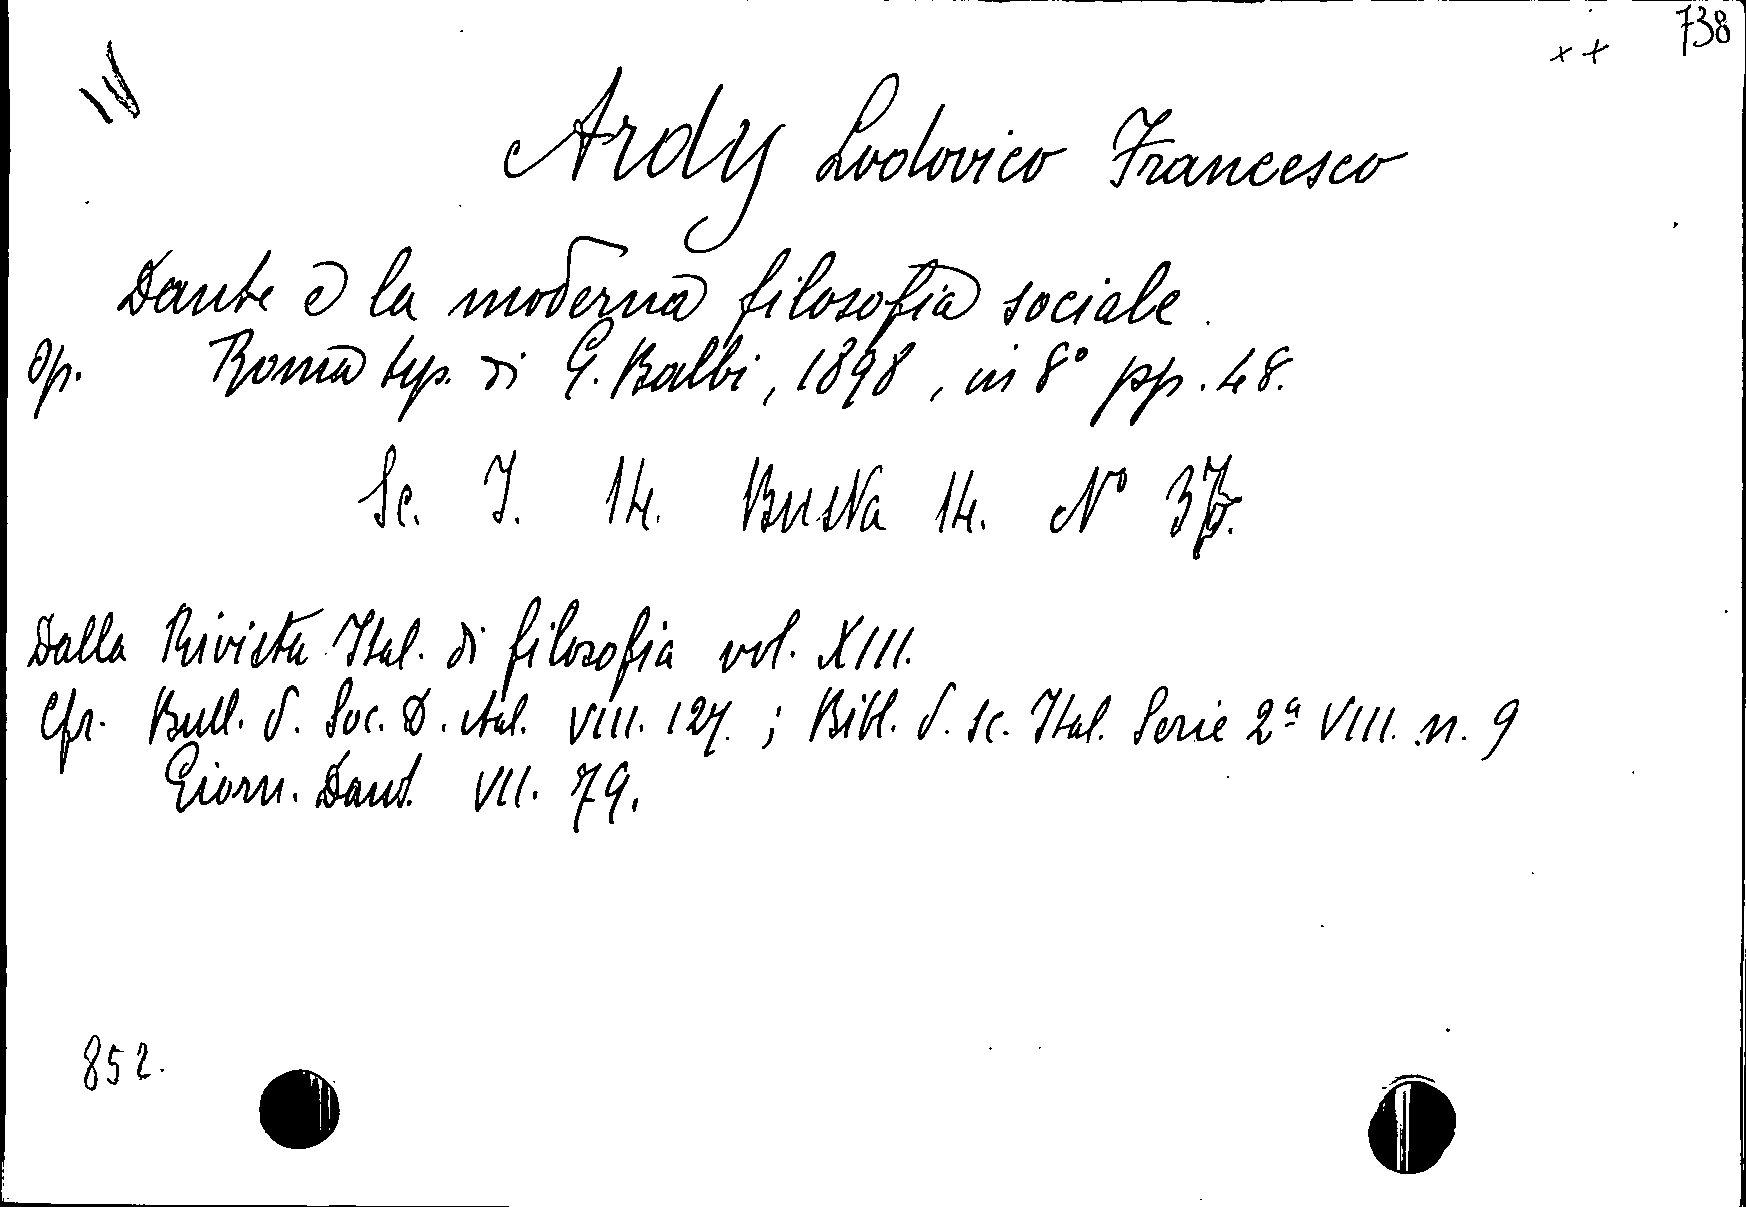 738
++
IV
Ardy Lodovico Francesco
Dante e la moderna filosofia sociale.
Op. Roma tip. di G. Balbi, 1898, in 8° pp. 48.
Sc. I. 14. Busta 14. N° 37.
Dalla Rivista Ital. di filosofia vol. XIII.
Cfr. Bull. d. Soc. D. Ital. VIII. 127. ; Bibl. d. sc. Ital. Serie 2ª VIII. n. 9
Giorn. Dant. VII. 79.
852.